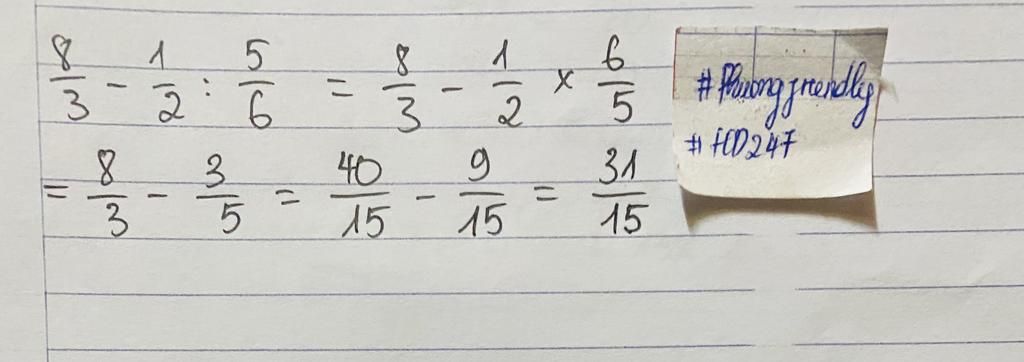 8/3 - 1/2 : 5/6 = 8/3 - 1/2 × 6/5
= 8/3 - 3/5 = 40/15 - 9/15 = 31/15
#Phuongfriendly
#HD247